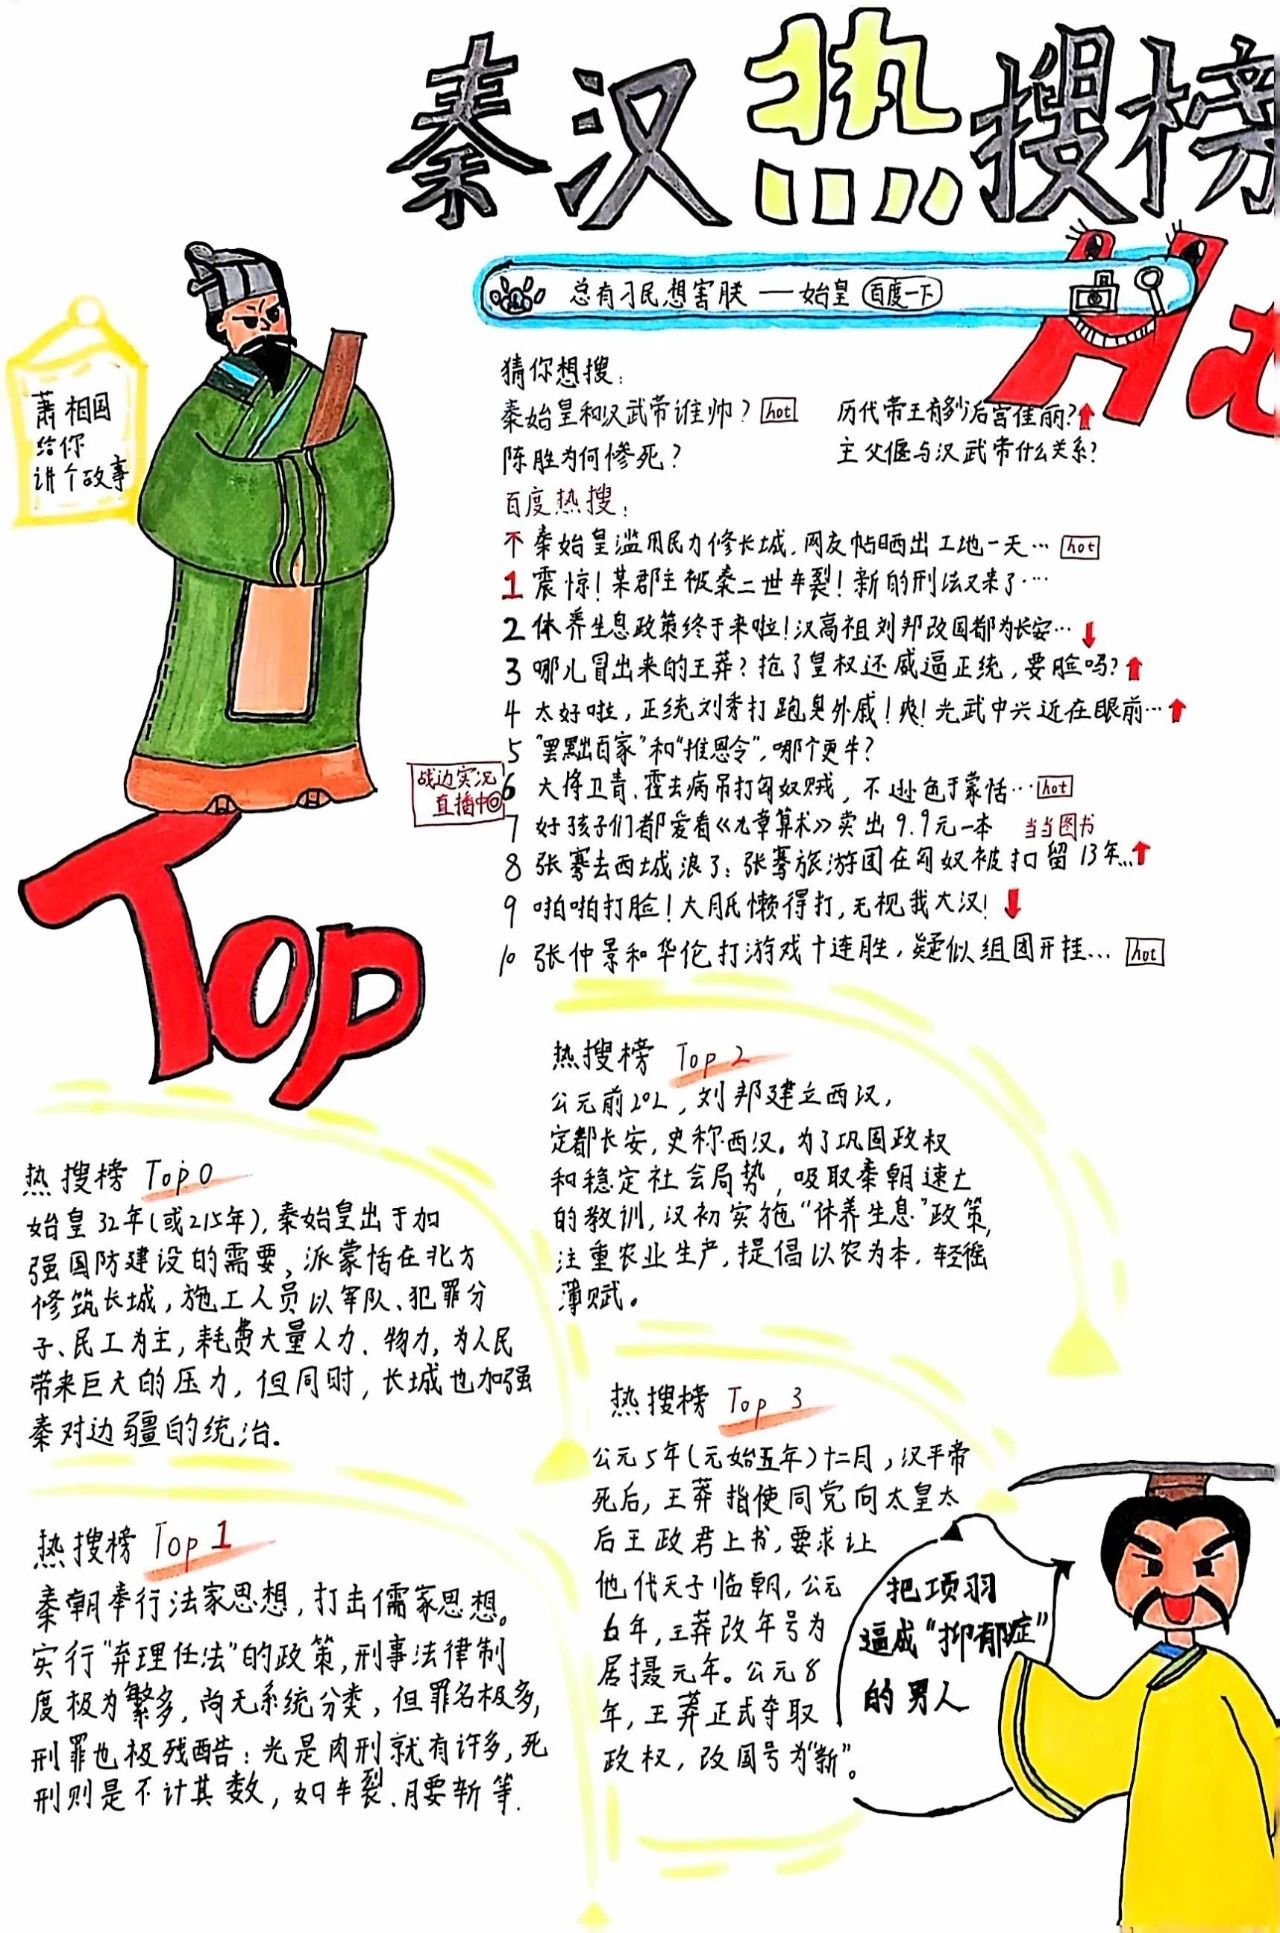 秦汉热搜榜
Hot
总有刁民想害朕——始皇 百度一下
猜你想搜:
秦始皇和汉武帝谁帅? hot
历代帝王有多少后宫佳丽?
陈胜为何惨死?
主父偃与汉武帝什么关系?
百度热搜:
秦始皇滥用民力修长城,网友帖晒出工地一天… hot
1 震惊!某郡主被秦二世车裂!新的刑法又来了…
2 休养生息政策终于来啦!汉高祖刘邦改国都为长安…
3 哪儿冒出来的王莽?抢了皇权还威逼正统,要脸吗?
4 太好啦,正统刘秀打跑臭外戚!爽!光武中兴近在眼前…
5 "罢黜百家"和"推恩令",哪个更牛?
6 大将卫青、霍去病吊打匈奴贼,不逊色于蒙恬… hot
战边实况
直播中
7 好孩子们都爱看《九章算术》卖出9.9元一本 当当图书
8 张骞去西域浪了:张骞旅游团在匈奴被扣留13年…
9 啪啪打脸!大月氏懒得打,无视我大汉!
10 张仲景和华佗打游戏十连胜,疑似组团开挂… hot
萧相国
给你
讲个故事
Top
热搜榜 Top 0
始皇32年(或215年),秦始皇出于加
强国防建设的需要,派蒙恬在北方
修筑长城,施工人员以军队、犯罪分
子、民工为主,耗费大量人力、物力,为人民
带来巨大的压力,但同时,长城也加强
秦对边疆的统治.
热搜榜 Top 1
秦朝奉行法家思想,打击儒家思想。
实行"弃理任法"的政策,刑事法律制
度极为繁多,尚无系统分类,但罪名极多,
刑罪也极残酷:光是肉刑就有许多,死
刑则是不计其数,如车裂.腰斩等.
热搜榜 Top 2
公元前202,刘邦建立西汉,
定都长安,史称西汉。为了巩固政权
和稳定社会局势,吸取秦朝速亡
的教训,汉初实施"休养生息"政策,
注重农业生产,提倡以农为本,轻徭
薄赋。
热搜榜 Top 3
公元5年(元始五年)十二月,汉平帝
死后,王莽指使同党向太皇太
后王政君上书,要求让
他代天子临朝,公元
6年,王莽改年号为
居摄元年。公元8
年,王莽正式夺取
政权,改国号为"新"。
把项羽
逼成"抑郁症"
的男人